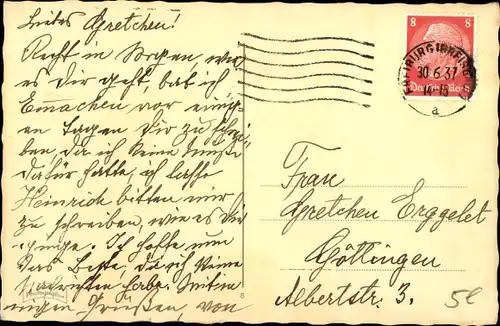 Liebes Gretchen!
Recht in Sorgen, wie
es Dir geht, bat ich
vor einig-
en Tagen Dir zu schrei-
ben, da ich keine Muße
dafür hatte, ich lasse
Heinrich bitten mir
zu schreiben, wie es Dir
ginge. Ich hoffe nun
das Beste, da ich keine
Nachrichten habe. Mit in-
nigen Grüßen, von
8 8
Deutsches Reich
30.6.37
a
Frau
Gretchen Erggelet
Göttingen
Albertstr. 3.
8
5€